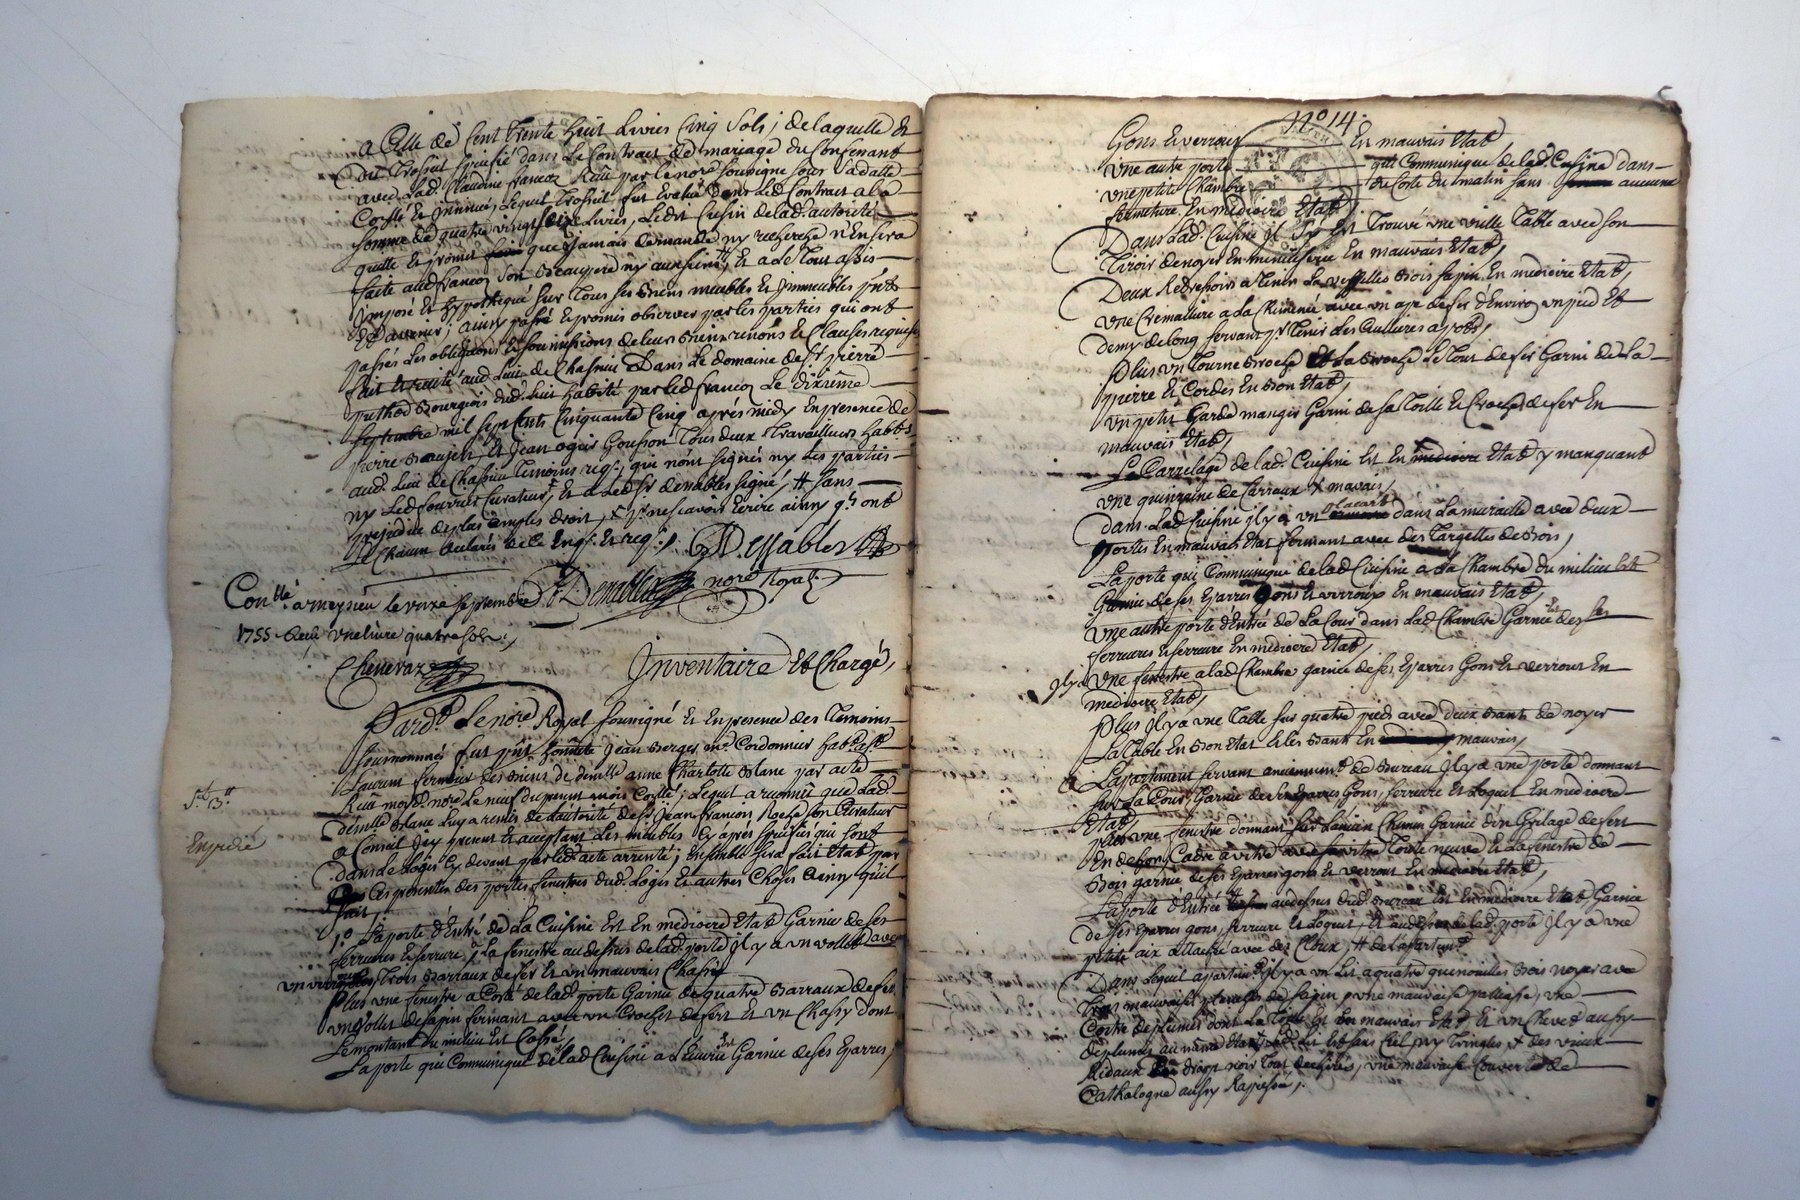 a Celle de Cent Trente huit Livres Cinq Sols; de laquelle et
dit Trossel speciffié dans Le Contrait de mariage du Confenant
avec Lad. Claudine francoz Reçu par Le nore soussigné sous sa datte
Contlé et insinué, Lequel Trossel fut Evalué dans Led Contrait a la
somme de quatre vingt seize Livres, Ledit Cusin de lad. autorité
quitte Et promet que jamais demande ny recherche n'En sera
faite aud francoz son Beaupere ny aux siens, Et a de Tout assis
imposé Et hypothequé sur Tous ses Biens meubles Et immeubles pnts
Et avenir; ainsy passé Et promis observer par les parties qui ont
passés Les obligations Et soumissions de leurs Biens renons Et Clauses requises
fait Et recité aud. Lieu de Chassieu Dans Le domaine de Sr pierre
puthod Bourgeois dud. Lieu habité par led francoz Le dixième
septembre mil sept Cents Cinquante Cinq après midy En presence de
pierre Et Jean ogier Gonson Tous deux Travailleurs habts
aud. Lieu de Chassieu Temoins reqs; qui n'ont signés ny Les parties
ny Led Curateur, Et a Led Sr signé, # sans
prejudice de plus amples droit, pr ne sçavoir Ecrire ainsy qls ont
Et Chacun declarés de Ce Enqs Et reqs;
Dessables nore Royal
Contllé a meysieu le onze septembre
1755 Reçu une livre quatre sols,
Chenevaz
Inventaire Et Chargé,
Pardt Le nore Royal soussigné Et En presence des Temoins
sousnommés fut pnt honnête Jean Berger md Cordonnier habt a St
Laurent fermier des Biens de demlle anne Charlotte Blanc par acte
Reçu moyd nore Le neuf du present mois Contlé; Lequel a reconnu que Lad.
demlle Blanc Luy a remis de L'autorité de Sr Jean francois Roche son Curateur
a Conseil Icy present Et acceptant Les meubles Cy après speciffiés qui sont
dans Le Logis Cy devant par led acte arrenté; Ensemble sera fait Etat par
Ces presentes des portes fenestres dud. Logis Et autres Choses ainsy qu'il
suit,
St 13 s
Expedié
1o La porte d'Entré de La Cuisine Est En mediocre Etat Garnie de ses
ferrures Et serrure, a La fenestre au dessus de lad. porte Il y a un vollet avec
Trois Barraux de fer Et un mauvais Chassis
Plus une fenestre a Coté de lad porte Garnie de quatre Barraux de fer
un vollet de sapin fermant avec un Crochet de fert Et un Chassy dont
Le montant du milieu Est Cassé,
La porte qui Communique de lad Cuisine a L'Ecurie Est Garnie de ses Eparres,
No 14
Gons Et verroux En mauvais Etat
une autre porte qui Communique de lad. Cuisine dans
une petite Chambre du Coté du matin sans aucune
fermeture En mediocre Etat
Dans Lad. Cuisine Il s'y Est Trouvé une vielle Table avec son
Tiroir de noyer En menuiserie En mauvais Etat,
Deux Redressoirs a Tenir La vesselles Bois sapin En mediocre Etat,
une Cremaliere a La Cheminée avec un aze de fer d'Environ un pied Et
Demy de long servant pr Tenir Les Cullieres a pots,
Plus un Tourne Broche Et La Broche Le Tout de fer Garni de La
pierre Et Cordes En Bon Etat,
un petit Garde manger Garni de sa Toille Et Crochet de fer En
mauvais Etat,
Le Carrelage de lad. Cuisine Est En mediocre Etat y manquant
une quinzaine de Carraux mavais,
Dans Lad Cuisine il y a un placard dans La muraille avec deux
portes En mauvais Etat fermant avec des Targettes de Bois,
La porte qui Communique de lad Cuisine a La Chambre du milieu Est
Garnie de ses Eparres Gons Et verroux En mauvais Etat,
une autre porte d'Entrée de La Cour dans Lad Chambre Est Garnie de ses
ferrures Et serrure En mediocre Etat,
Il y a une fenestre a lad Chambre garnie de ses Eparres Gons Et verroux En
mediocre Etat,
Plus Il y a une Table sur quatre pieds avec deux Bants de noyer
La Table En Bon Etat Et les Bants En mauvais,
a L'apartement servant anciennemt de Bureau Il y a une porte donnant
sur La Cour, Garnie de ses Eparres Gons, serrure Et Loquet En mediocre
Etat
plus une fenestre donnant sur L'ancien Chemin Garnie d'un Grilage de fert
En dehors, Cadre a vitre Toute neuve Et La fenestre de
Bois garnie de ses Eparres gons Et verroux En mediocre Etat,
La porte d'Entrée au dessus dud. Bureau Est En mediocre Etat Garnie
de ses Eparres gons, serrure Et Loquet, Et au dessus de lad. porte Il y a une
petite aix attachée avec des Cloux, # de L'apartemt
Dans Lequel apartemt Il y a un Lit a quatre quenouilles Bois noyer avec
Trois mauvaises planches de sapin, une mauvaise palliasse, une
Coitre de plumes dont La Toille Est En mauvais Etat Et un Chevet aussy
de plumes au même Etat, led Lit Est sans Ciel ny Tringles des vieux
Rideaux drap noir Tout dechirés, une mauvaise Couverte de
Cathalogne aussy Rapiessé,